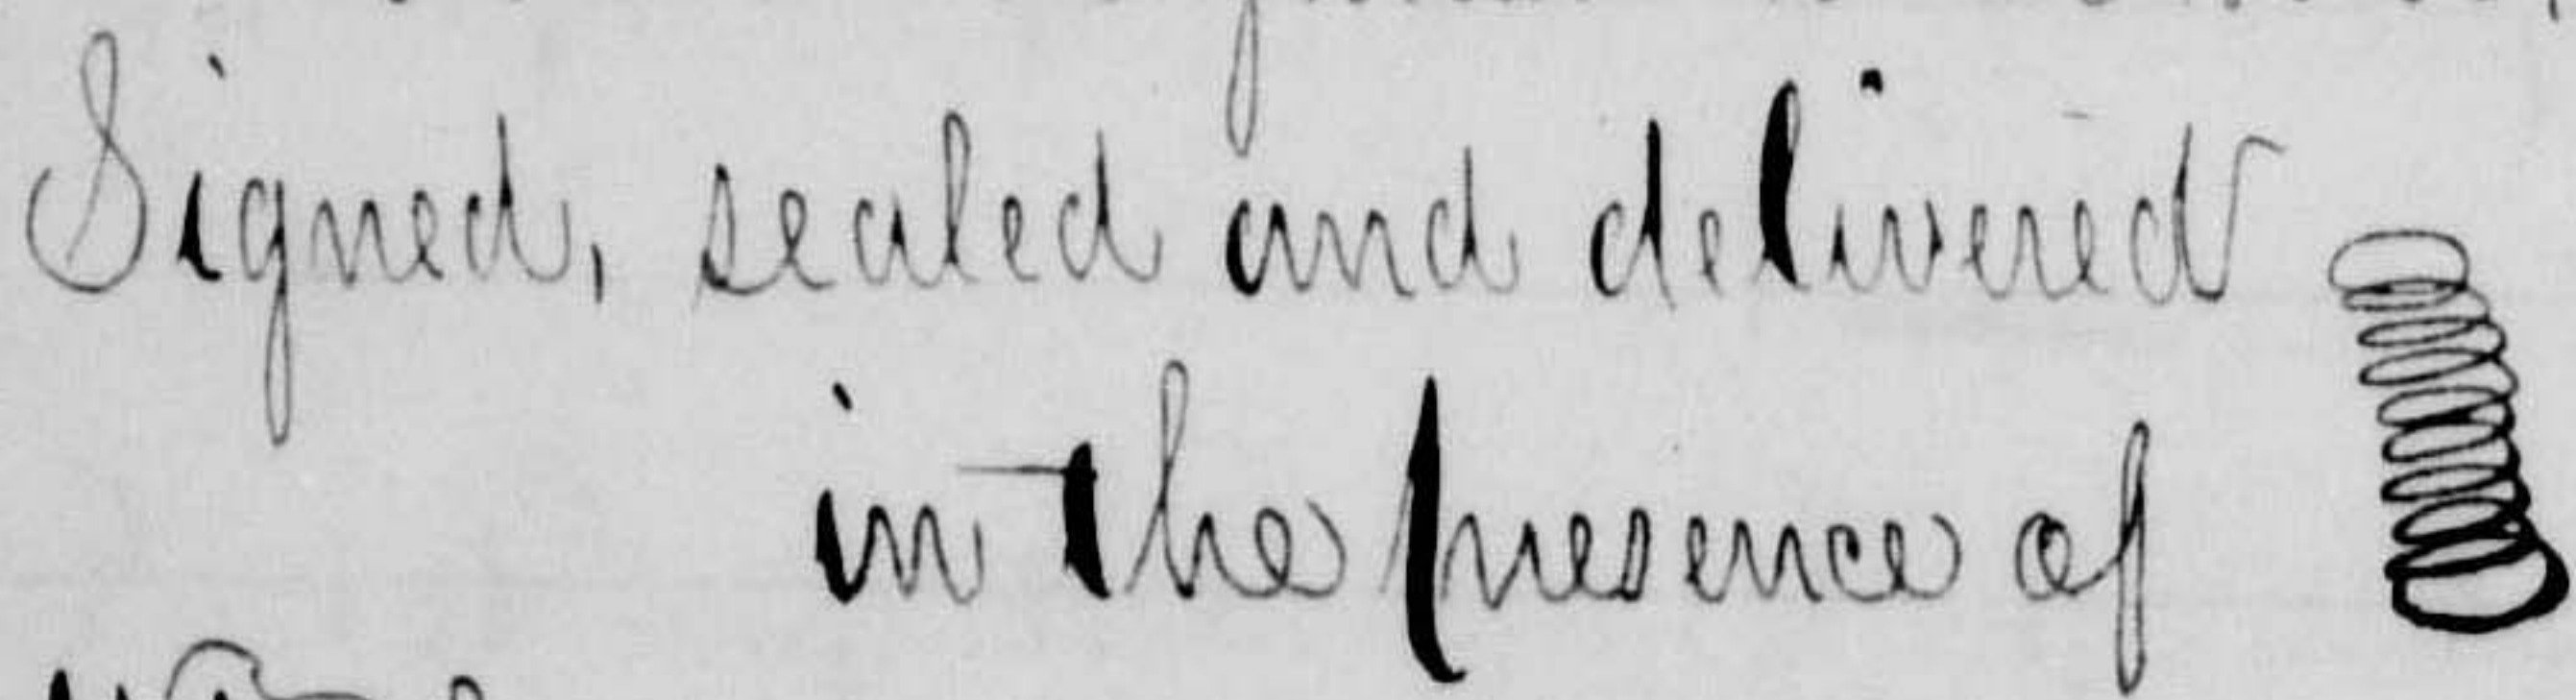 Signed, sealed and delivered
in the presence of